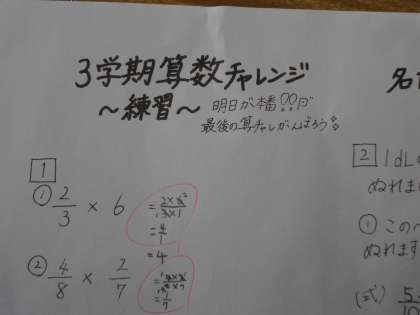 3学期算数チャレンジ
～練習～
明日が本番!!
最後の算チャレがんばろう!!
名
1
① 2/3 × 6
= 2×6/3×1
= 4/1
= 4
② 4/8 × 2/7
= 1/7
2 1dLの
ぬれま
① このペ
ぬれます
(式) 5/10